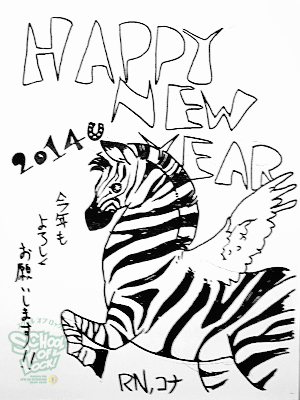 HAPPY
NEW
YEAR
2014
今年も
よろしく
お願いします!!
SCHOOL
OF
LOCK!
RN,コナ